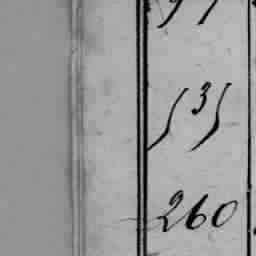 (3)
260